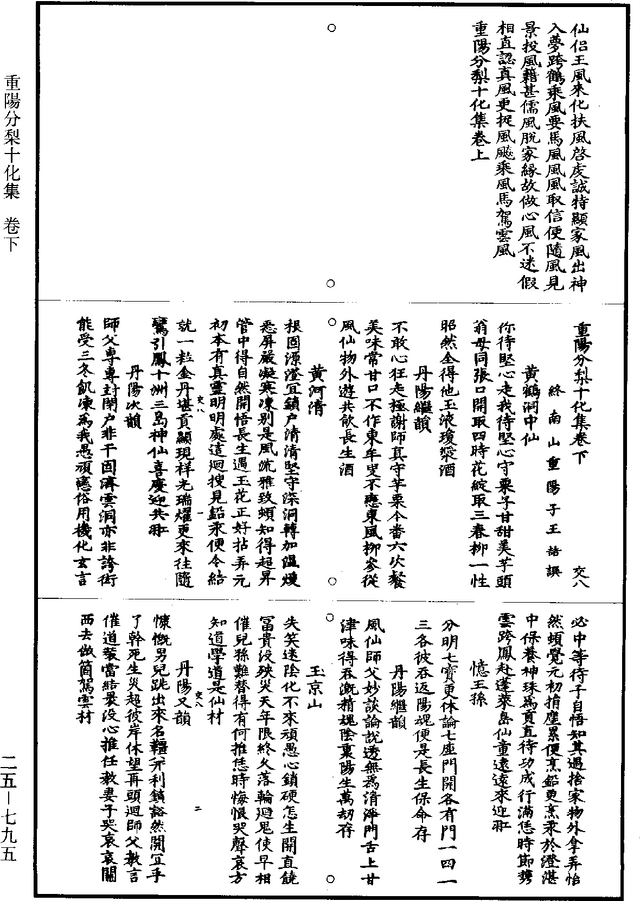 重陽分梨十化集 卷下
二五—七九五
仙侶王風來化扶風啓虔誠特顯家風出神
入夢跨鶴乘風要馬風風風取信便隨風見
景投風籍甚儒風脫家緣故做心風不迷假
相直認真風更捉風颷乘風馬駕雲風
重陽分梨十化集卷上
重陽分梨十化集卷下 交八
終南山重陽子王嚞撰
黃鶴洞中仙
你待堅心走我待堅心守栗子甘甜美芋頭
翁母同張口開取四時花綻取三春柳一性
昭然全得他玉液瓊漿酒
丹陽繼韻
不敢心狂走極謝師真守芋栗今番六次餐
美味常甘口不作東牟叟不應東風柳參從
風仙物外遊共飲長生酒
黃河清
根固源澄宜鎖戶清清堅守深洞轉加溫煗
悉屏嚴凝寒凍別是風流雅致頓知得超昇
管中得自然開悟長生遇玉花正好拈弄元
初本有真靈明明處這迴搜見鉛汞便令結
就一粒金丹堪貢顯現祥光瑞耀更來往隨
鸞引鳳十洲三島神仙喜慶迎共
丹陽次韻
師父專專封閉戶非干固濟雲洞亦非誇衒
能受三冬飢凍爲我愚頑應俗用機化玄言
必中等待子自悟知其遇捨家物外拿弄恰
然頓覺元初揩塵累便烹鉛更烹汞於澄湛
中保養神珠爲貢直待功成行滿恁時節携
雲跨鳳赴蓬萊島仙童遠遠來迎
憶王孫
分明七寶更休論七座門開各有門一四一
三各彼吞返陽魂便是長生保命存
丹陽繼韻
風仙師父妙談論說透無爲清淨門舌上甘
津味得吞漱精魂陰裏陽生萬劫存
玉京山
失笑速陰化不來頑愚心鎖硬怎生開直饒
冨貴沒殃災天年限終久落輪迴鬼使早相
催兒孫難替得有何推恁時悔恨哭聲哀方
知道學道是仙材
丹陽又韻
慷慨男兒跳出來名韁并利鎖豁然開宜乎
了幹死生災超彼岸休望再頭迴師父教言
催道蒙當結裹沒心推任教妻子哭哀哀關
西去做箇駕雲材